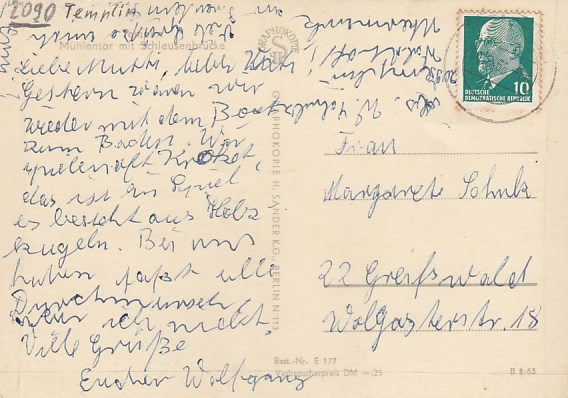 2090 Templin
Mühlentor mit Schleusenbrücke
Liebe Mutti, lieber
Gestern waren wir
wieder mit dem Boot
zum Baden. Wir
spielen oft Krocket,
das ist ein Spiel,
es besteht aus Holz
kugeln. Bei uns
haben faßt alle
Durchmarsch
nur ich nicht.
Viele Grüße
Eucher Wolfgang
GRAPHOKOPIE
GRAPHOKOPIE H. SANDER KG., BERLIN N 113
DEUTSCHE
DEMOKRATISCHE REPUBLIK
10
Frau
Margarete Schulz
22 Greifswald
Wolgasterstr. 18
Best.-Nr. E 177
Verbraucherpreis DM -,25
B 8/63